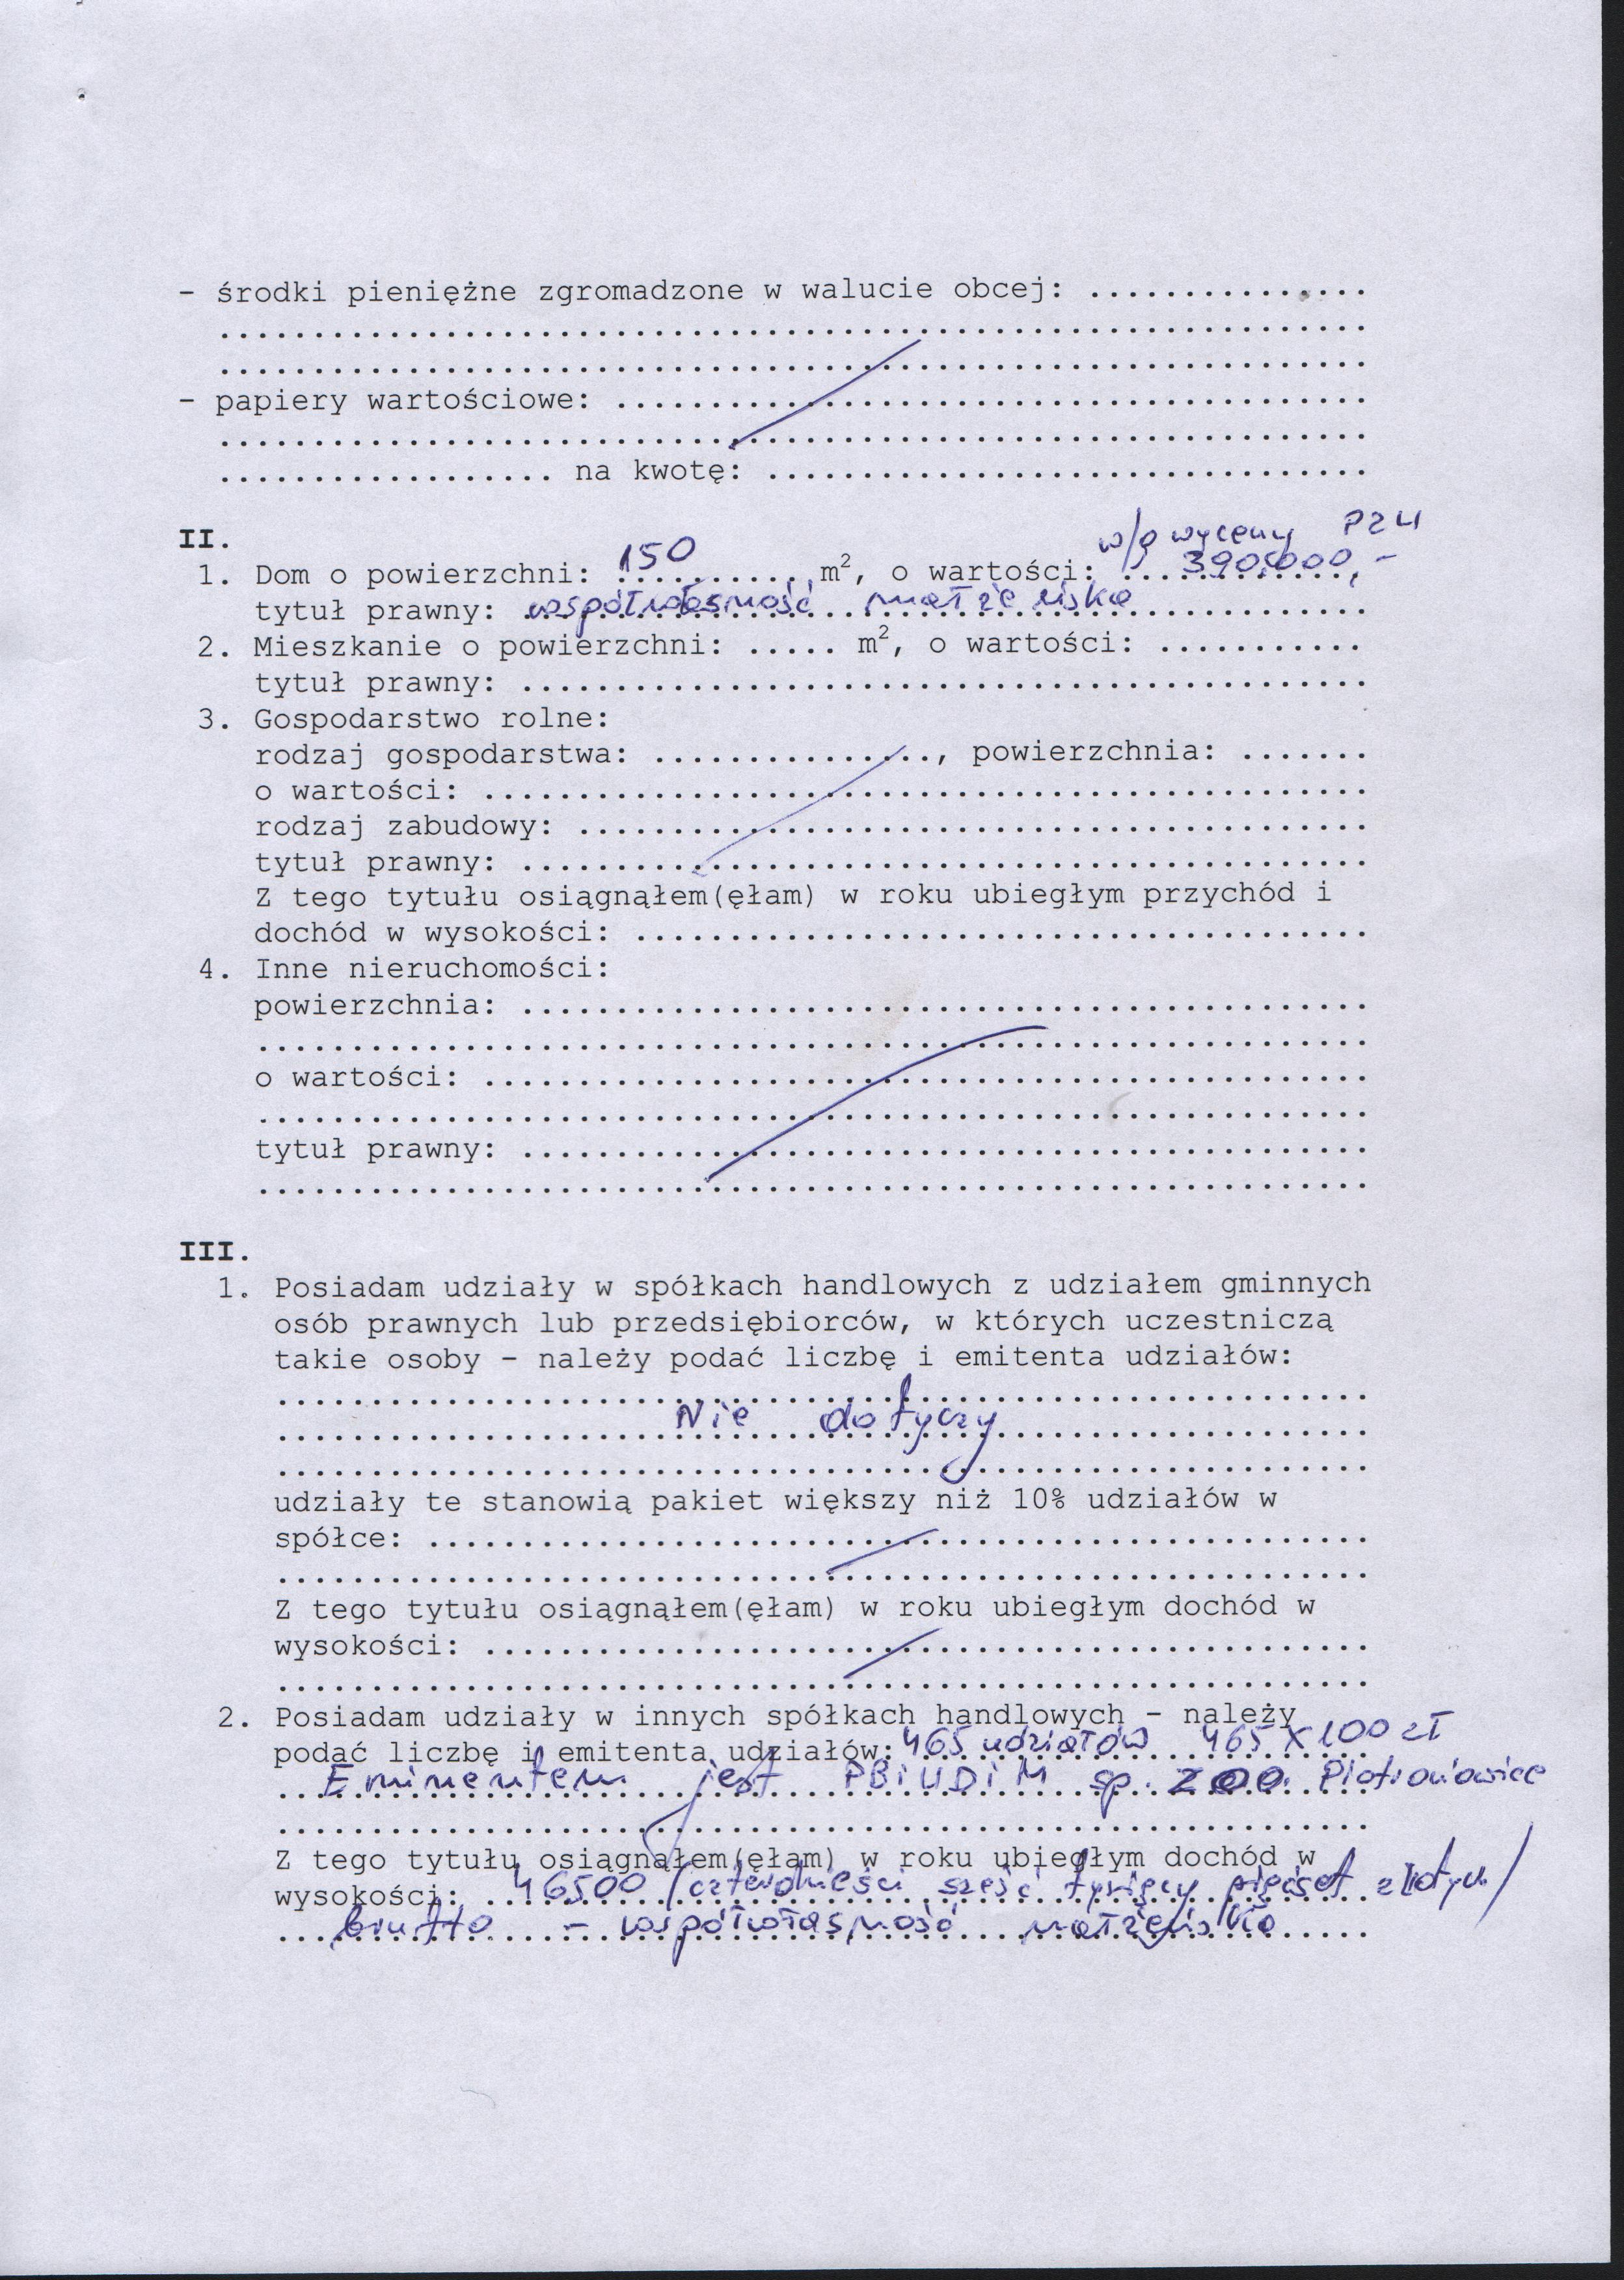 - środki pieniężne zgromadzone w walucie obcej: ...............
.............................................................
.............................................................
- papiery wartościowe: ........................................
.............................................................
.................. na kwotę: ................................
II.
w/g wyceny PZU
1. Dom o powierzchni: 150 m², o wartości: 390.000,-
tytuł prawny: współwłasność małżeńska
2. Mieszkanie o powierzchni: ..... m², o wartości: ...........
tytuł prawny: .............................................
3. Gospodarstwo rolne:
rodzaj gospodarstwa: ..............., powierzchnia: .......
o wartości: ...............................................
rodzaj zabudowy: ..........................................
tytuł prawny: .............................................
Z tego tytułu osiągnąłem(ęłam) w roku ubiegłym przychód i
dochód w wysokości: .......................................
4. Inne nieruchomości:
powierzchnia: .............................................
...........................................................
o wartości: ...............................................
...........................................................
tytuł prawny: .............................................
...........................................................
III.
1. Posiadam udziały w spółkach handlowych z udziałem gminnych
osób prawnych lub przedsiębiorców, w których uczestniczą
takie osoby - należy podać liczbę i emitenta udziałów:
..........................................................
Nie dotyczy
..........................................................
udziały te stanowią pakiet większy niż 10% udziałów w
spółce: ..................................................
..........................................................
Z tego tytułu osiągnąłem(ęłam) w roku ubiegłym dochód w
wysokości: ...............................................
..........................................................
2. Posiadam udziały w innych spółkach handlowych - należy
podać liczbę i emitenta udziałów: 465 udziałów 465 x 100 zł
Eminentem jest PBiUDiM sp. z oo. Piotroniowice
..........................................................
Z tego tytułu osiągnąłem(ęłam) w roku ubiegłym dochód w
wysokości: 46500 /czterdzieści sześć tysięcy pięćset złotych/
brutto - współwłasność małżeńska